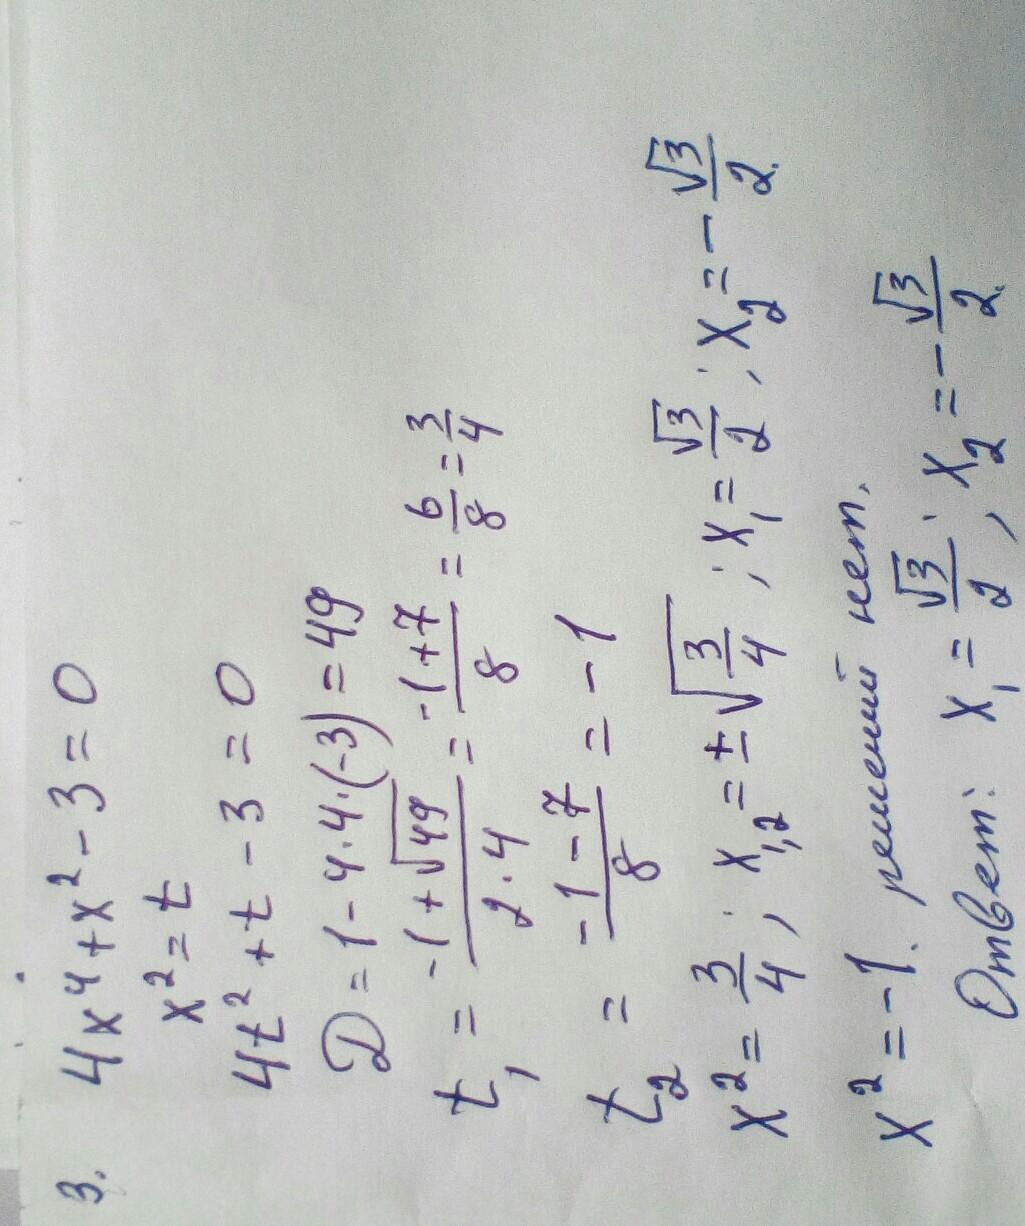 3. 4x⁴+x²-3=0
x²=t
4t²+t-3=0
D=1-4·4·(-3)=49
t₁ = (-1+√49)/(2·4) = (-1+7)/8 = 6/8 = 3/4
t₂ = (-1-7)/8 = -1
x² = 3/4; x₁,₂ = ±√(3/4); x₁ = √3/2; x₂ = -√3/2.
x² = -1. решений нет.
Ответ: x₁ = √3/2; x₂ = -√3/2.